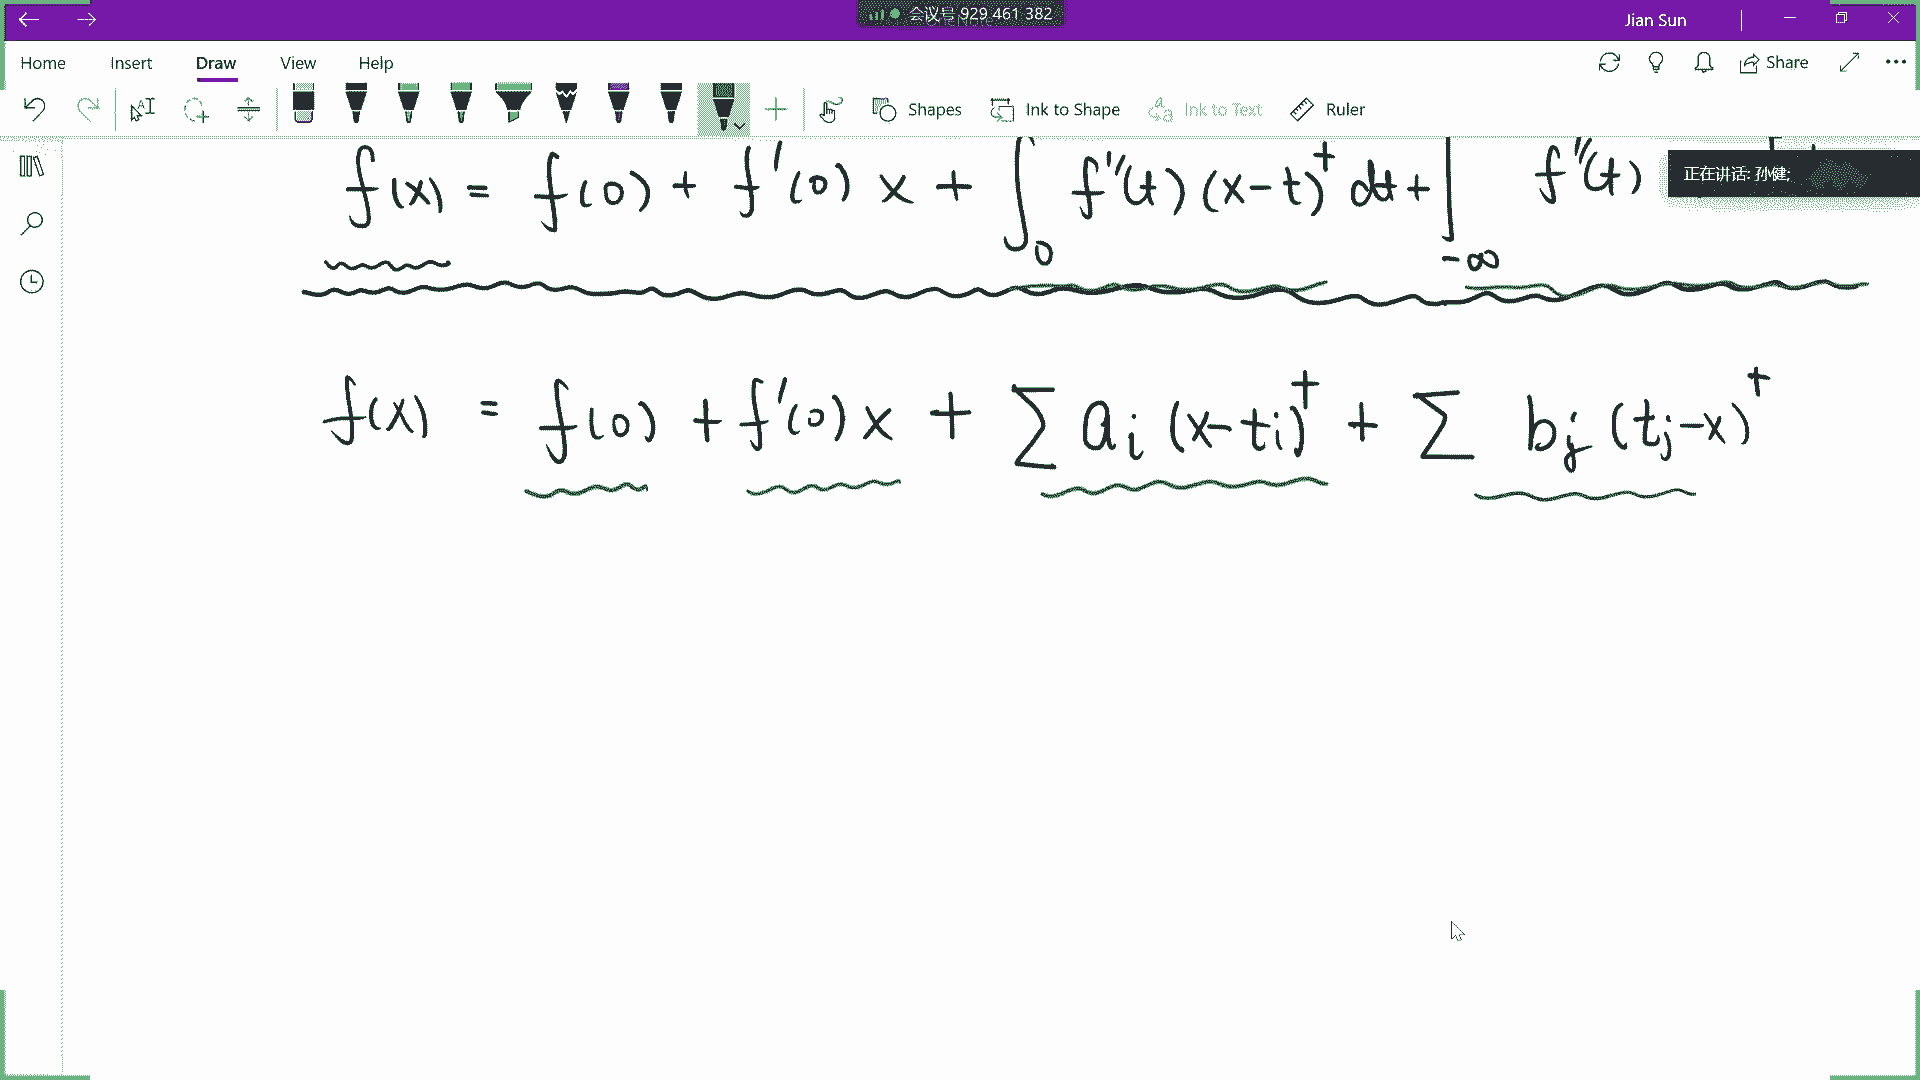 会议号 929 461 382
Jian Sun
Home Insert Draw View Help
Share
Shapes Ink to Shape Ink to Text Ruler
正在讲话: 孙健;
f(x) = f(0) + f'(0) x + ∫₀ f''(t) (x-t)⁺ dt + ∫_{-∞} f''(t)
f(x) = f(0) + f'(0) x + ∑ aᵢ (x-tᵢ)⁺ + ∑ bⱼ (tⱼ-x)⁺